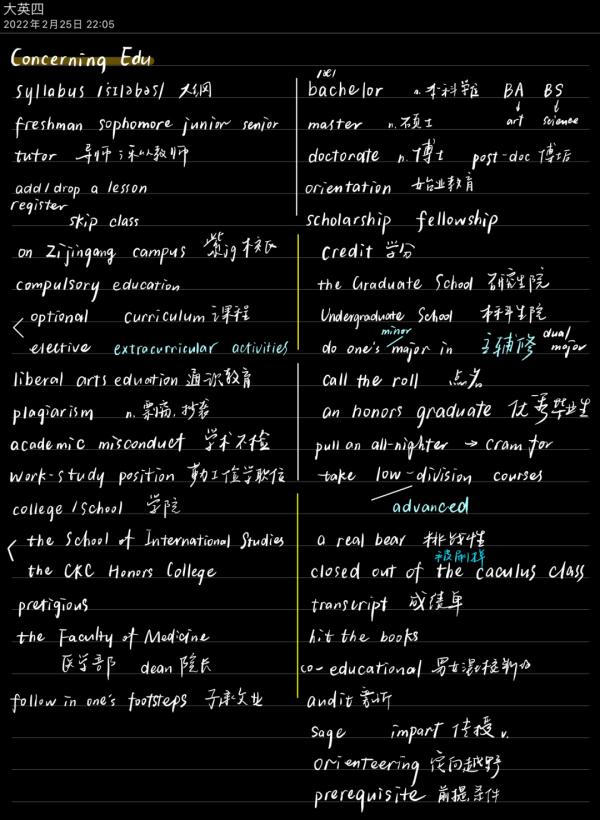 大英四
2022年2月25日 22:05
Concerning Edu
syllabus /sɪləbəs/ 大纲
freshman sophomore junior senior
tutor 导师;私人教师
add/drop a lesson
register
skip class
on Zijingang campus 紫jg校区
compulsory education
optional curriculum 课程
elective extracurricular activities
liberal arts eduation 通识教育
plagiarism n. 剽窃,抄袭
academic misconduct 学术不检
work-study position 勤工俭学职位
college/school 学院
the School of International Studies
the CKC Honors College
pretigious
the Faculty of Medicine
医学部 dean 院长
follow in one's footsteps 子承父业
/æ/
bachelor n.本科学位 BA BS
master n.硕士 art science
doctorate n.博士 post-doc 博士后
orientation 始业教育
scholarship fellowship
credit 学分
the Graduate School 研究生院
Undergraduate School 本科生院
minor
do one's major in 主辅修 dual major
call the roll 点名
an honors graduate 优秀毕业生
pull an all-nighter → cram for
take low-division courses
advanced
a real bear 挑战性
被刷掉
closed out of the caculus class
transcript 成绩单
hit the books
co-educational 男女混校制的
audit 旁听
sage impart 传授 v.
orienteering 定向越野
prerequisite 前提条件